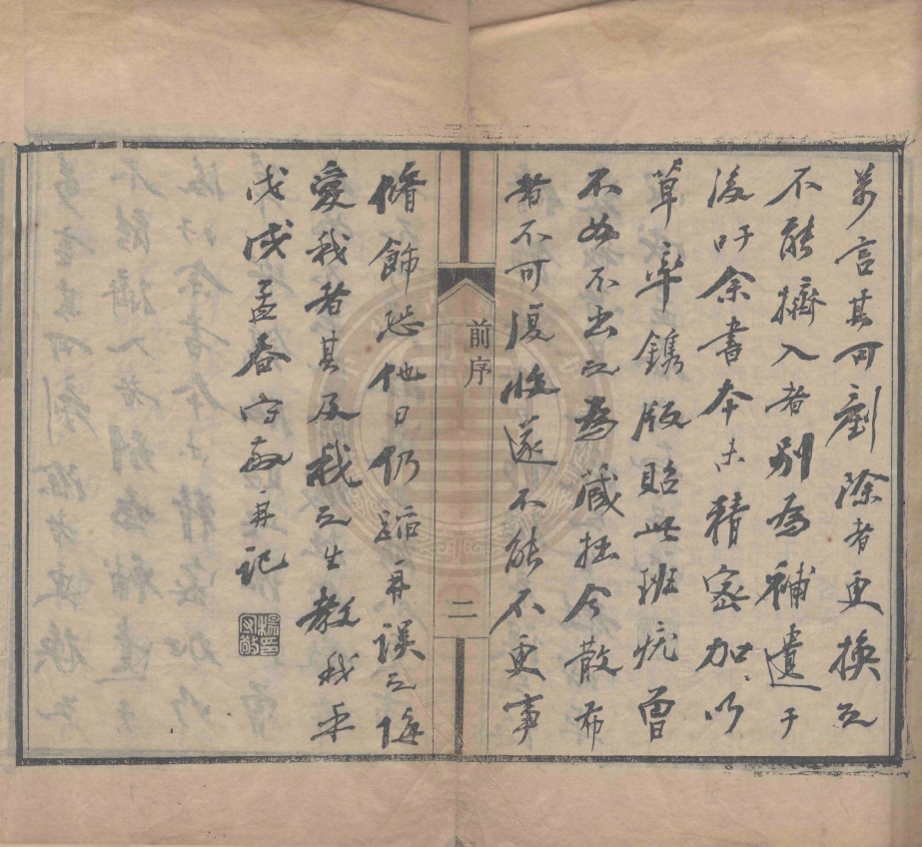 萬言其可剷除者更換之
不能擠入者別為補遺于
後吁余書本未精密加以
草率鐫版貽此班疣曾
不如不出之為藏拙今散布
者不可復收遂不能不更事
前序
二
脩飾恐他日仍蹈再誤之悔
愛我者其及我之生教我乎
戊戌孟春守敬再記
楊印守敬